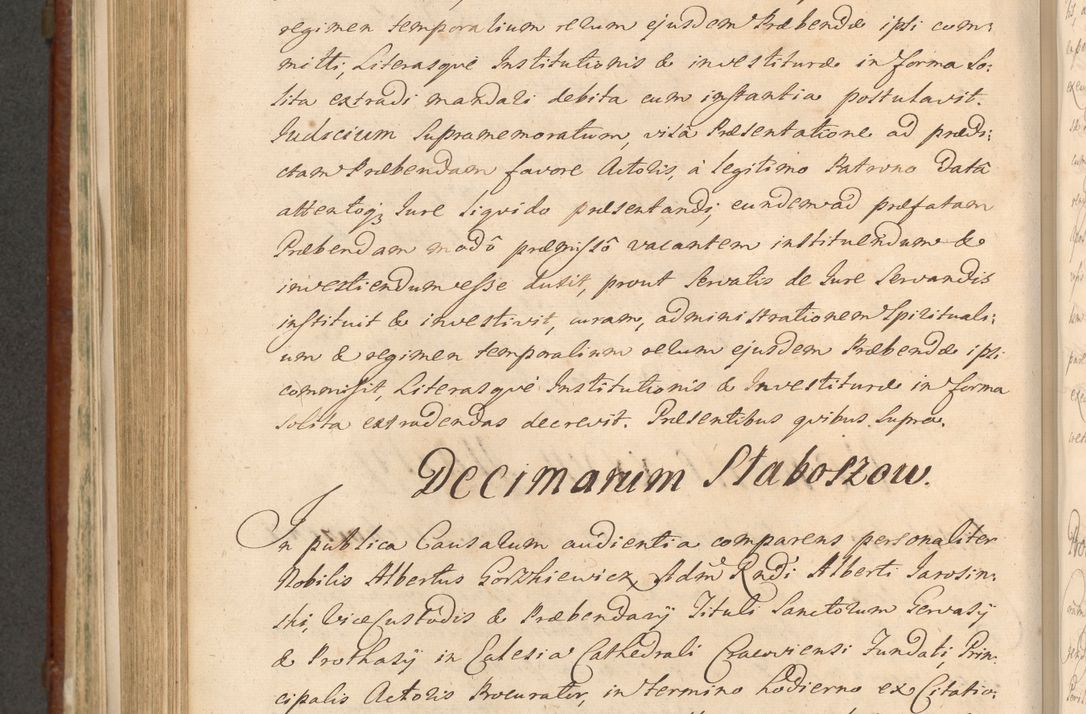 regimen temporalium rerum ejusdem Præbendæ ipsi com:
mitti, Literasque Institutionis & investituræ in forma So:
lita extradi mandari debita cum instantia postulavit.
Judicium Supramemoratum, visâ Præsentatione ad prædi:
ctam Præbendam favore Actoris, à legitimo Patrono Datâ
attentoq; Jure liquido præsentandi, eundem ad præfatam
Præbendam modô præmissô vacantem instituendum &
investiendum esse duxit, prout servatis de Jure Servandis
instituit & investivit, curam, administrationem Spirituali:
um & regimen temporalium rerum ejusdem Præbendæ ipsi
commisit, Literasque Institutionis & Investituræ in forma
solita extradendas decrevit. Præsentibus quibus Supra.
Decimarum Słaboszow.
In publica Causarum audientia comparens personaliter
Nobilis Albertus Gorzkiewicz, Adm Rndi Alberti Jarosin:
ski, ViceCustodis & Præbendarÿ Tituli Sanctorum Gervasÿ
& Prothasÿ in Eclesia Cathedrali Cracoviensi Fundati, Prin:
cipalis Actoris Procurator, in termino hodierno ex Citatio: